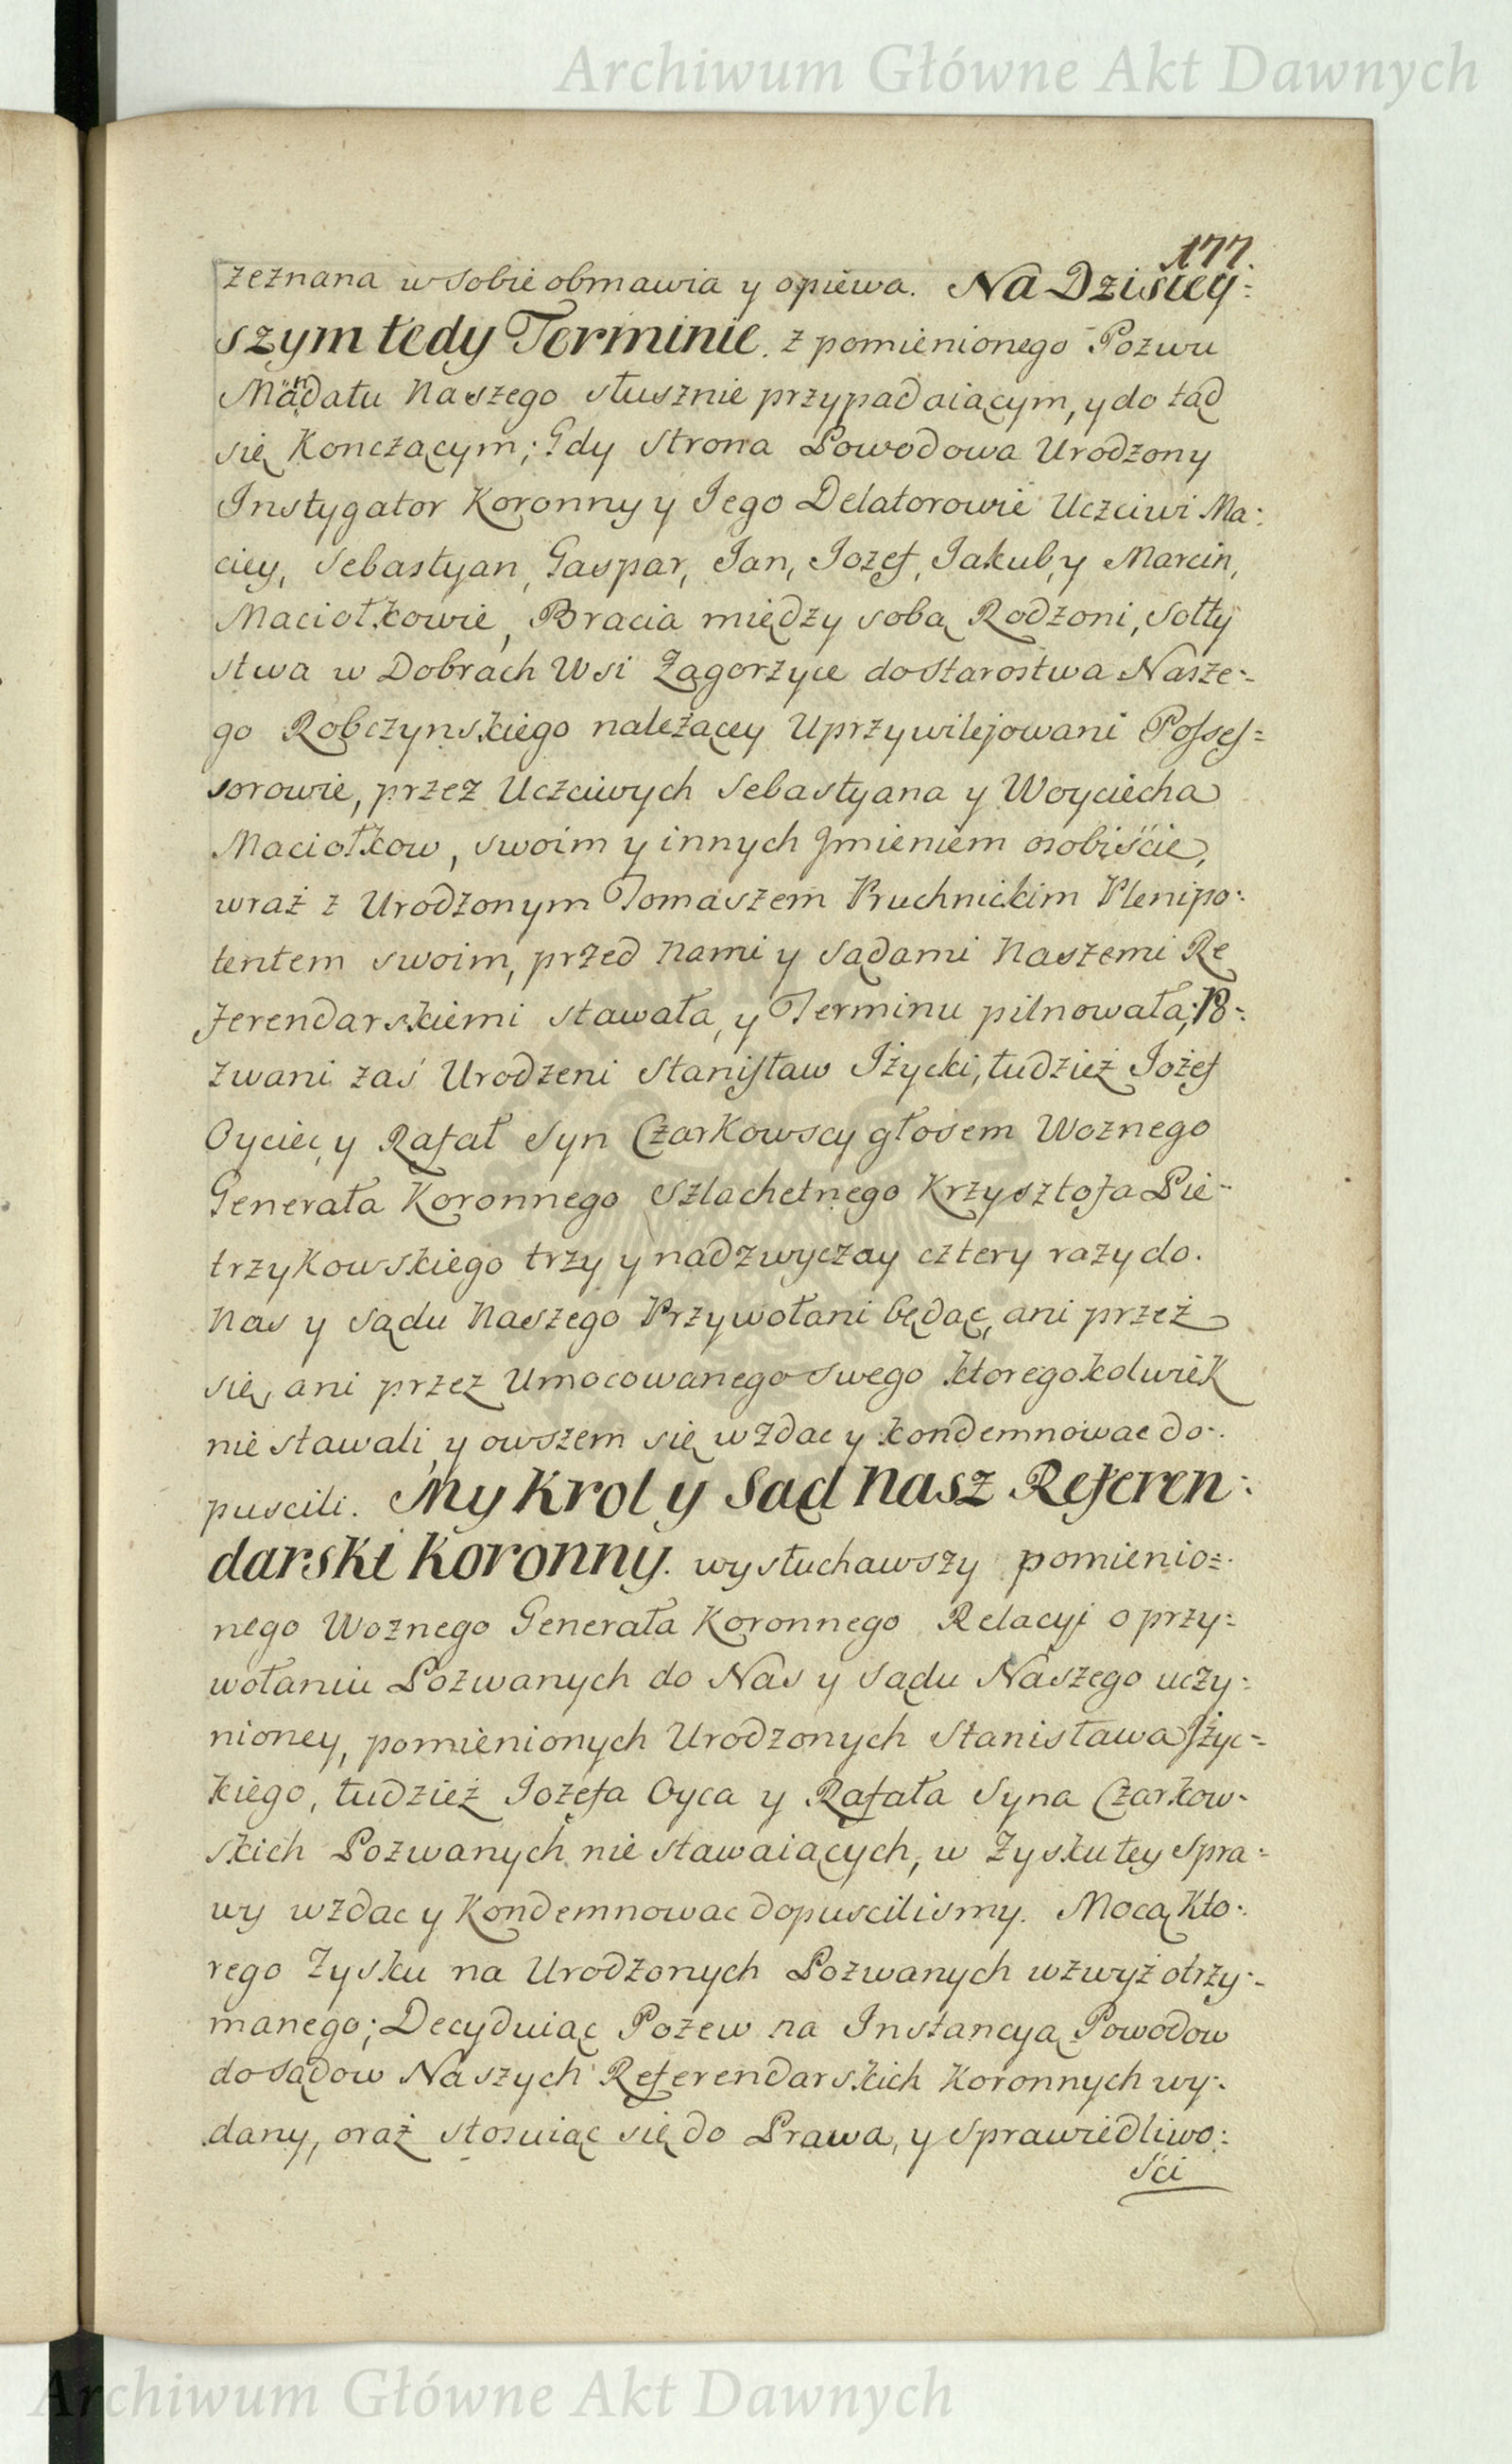 Archiwum Główne Akt Dawnych
177.
zeznana w sobie obmawia y opiewa. Na Dzisiey:
szym tedy Terminie. z pomienionego Pozwu
Mandatu Naszego słusznie przypadaiącym, y do tąd
się Konczącym; Gdy Strona Powodowa Urodzony
Instygator Koronny y Iego Delatorowie Uczciwi Ma:
ciey, Sebastyan, Gaspar, Ian, Iozef, Iakub, y Marcin,
Maciołkowie, Bracia między sobą Rodzoni, Sołty
stwa w Dobrach Wsi Zagorzyce do Starostwa Nasze:
go Robczynskiego należącey Uprzywilejowani Posses=
sorowie, przez Uczciwych Sebastyana y Woyciecha
Maciołkow, swoim y innych Jmieniem osobiście,
wraz z Urodzonym Tomaszem Pruchnickim Plenipo:
tentem swoim, przed Nami y Sądami Naszemi Re
ferendarskiemi stawała, y Terminu pilnowała; Po:
zwani zaś Urodzeni Stanisław Iżycki, tudzież Iozef
Oyciec, y Rafał Syn Czarkowscy głosem Woznego
Generała Koronnego Szlachetnego Krzysztofa Pie-
trzykowskiego trzy y nadzwyczay cztery razy do.
Nas y Sądu Naszego Przywołani będąc, ani przez
się, ani przez Umocowanego swego ktoregokolwiek
nie stawali, y owszem się wzdac y kondemnowac do:.
puscili. My Krol y Sąd Nasz Referen:
darski Koronny. wysłuchawszy pomienio=.
nego Woznego Generała Koronnego Relacyi o przy:
wołaniu Pozwanych do Nas y Sądu Naszego uczy:
nioney, pomienionych Urodzonych Stanisława Iżyc=
kiego, tudzież Iozefa Oyca y Rafała Syna Czarkow-
skich Pozwanych nie stawaiących, w Zysku tey Spra:
wy wzdac y Kondemnowac dopuscilismy. Mocą Kto:.
rego Zysku na Urodzonych Pozwanych wzwyż otrzy:-
manego; Decyduiąc Pozew na Instancyą Powodow
do Sądow Naszych Referendarskich Koronnych wy:.
dany, oraz stosuiąc się do Prawa, y Sprawiedliwo:
ści
Archiwum Główne Akt Dawnych